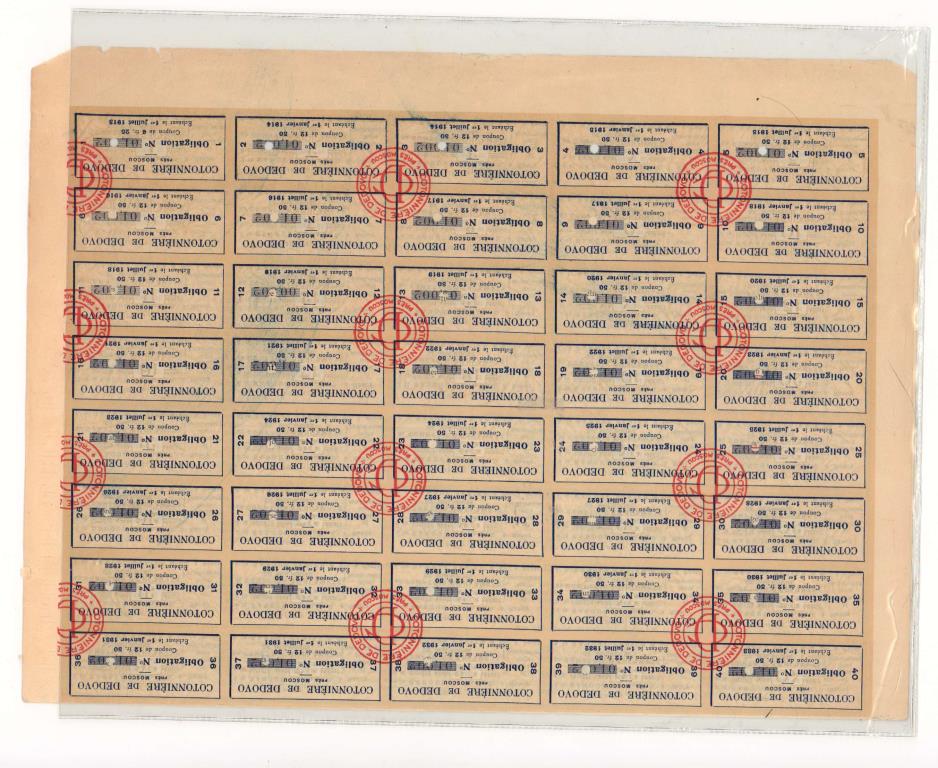 COTONNIÈRE DE DEDOVO COTONNIÈRE DE DEDOVO COTONNIÈRE DE DEDOVO COTONNIÈRE DE DEDOVO COTONNIÈRE DE DEDOVO
PRÈS MOSCOU PRÈS MOSCOU PRÈS MOSCOU PRÈS MOSCOU PRÈS MOSCOU
1 Obligation No 2 Obligation No 2 3 Obligation No 3 4 Obligation No 4 5 Obligation No 5
Coupon de 6 fr. 25 Coupon de 12 fr. 50 Coupon de 12 fr. 50 Coupon de 12 fr. 50 Coupon de 12 fr. 50
Échéant le 1er juillet 1913 Échéant le 1er janvier 1914 Échéant le 1er juillet 1914 Échéant le 1er janvier 1915 Échéant le 1er juillet 1915
COTONNIÈRE DE DEDOVO COTONNIÈRE DE DEDOVO COTONNIÈRE DE DEDOVO COTONNIÈRE DE DEDOVO COTONNIÈRE DE DEDOVO
PRÈS MOSCOU PRÈS MOSCOU PRÈS MOSCOU PRÈS MOSCOU PRÈS MOSCOU
6 Obligation No 6 7 Obligation No 7 8 Obligation No 8 9 Obligation No 9 10 Obligation No 10
Coupon de 12 fr. 50 Coupon de 12 fr. 50 Coupon de 12 fr. 50 Coupon de 12 fr. 50 Coupon de 12 fr. 50
Échéant le 1er janvier 1916 Échéant le 1er juillet 1916 Échéant le 1er janvier 1917 Échéant le 1er juillet 1917 Échéant le 1er janvier 1918
COTONNIÈRE DE DEDOVO COTONNIÈRE DE DEDOVO COTONNIÈRE DE DEDOVO COTONNIÈRE DE DEDOVO COTONNIÈRE DE DEDOVO
PRÈS MOSCOU PRÈS MOSCOU PRÈS MOSCOU PRÈS MOSCOU PRÈS MOSCOU
11 Obligation No 11 12 Obligation No 12 13 Obligation No 13 14 Obligation No 14 15 Obligation No 15
Coupon de 12 fr. 50 Coupon de 12 fr. 50 Coupon de 12 fr. 50 Coupon de 12 fr. 50 Coupon de 12 fr. 50
Échéant le 1er juillet 1918 Échéant le 1er janvier 1919 Échéant le 1er juillet 1919 Échéant le 1er janvier 1920 Échéant le 1er juillet 1920
COTONNIÈRE DE DEDOVO COTONNIÈRE DE DEDOVO COTONNIÈRE DE DEDOVO COTONNIÈRE DE DEDOVO COTONNIÈRE DE DEDOVO
PRÈS MOSCOU PRÈS MOSCOU PRÈS MOSCOU PRÈS MOSCOU PRÈS MOSCOU
16 Obligation No 16 17 Obligation No 17 18 Obligation No 18 19 Obligation No 19 20 Obligation No 20
Coupon de 12 fr. 50 Coupon de 12 fr. 50 Coupon de 12 fr. 50 Coupon de 12 fr. 50 Coupon de 12 fr. 50
Échéant le 1er janvier 1921 Échéant le 1er juillet 1921 Échéant le 1er janvier 1922 Échéant le 1er juillet 1922 Échéant le 1er janvier 1923
COTONNIÈRE DE DEDOVO COTONNIÈRE DE DEDOVO COTONNIÈRE DE DEDOVO COTONNIÈRE DE DEDOVO COTONNIÈRE DE DEDOVO
PRÈS MOSCOU PRÈS MOSCOU PRÈS MOSCOU PRÈS MOSCOU PRÈS MOSCOU
21 Obligation No 21 22 Obligation No 22 23 Obligation No 23 24 Obligation No 24 25 Obligation No 25
Coupon de 12 fr. 50 Coupon de 12 fr. 50 Coupon de 12 fr. 50 Coupon de 12 fr. 50 Coupon de 12 fr. 50
Échéant le 1er juillet 1923 Échéant le 1er janvier 1924 Échéant le 1er juillet 1924 Échéant le 1er janvier 1925 Échéant le 1er juillet 1925
COTONNIÈRE DE DEDOVO COTONNIÈRE DE DEDOVO COTONNIÈRE DE DEDOVO COTONNIÈRE DE DEDOVO COTONNIÈRE DE DEDOVO
PRÈS MOSCOU PRÈS MOSCOU PRÈS MOSCOU PRÈS MOSCOU PRÈS MOSCOU
26 Obligation No 26 27 Obligation No 27 28 Obligation No 28 29 Obligation No 29 30 Obligation No 30
Coupon de 12 fr. 50 Coupon de 12 fr. 50 Coupon de 12 fr. 50 Coupon de 12 fr. 50 Coupon de 12 fr. 50
Échéant le 1er janvier 1926 Échéant le 1er juillet 1926 Échéant le 1er janvier 1927 Échéant le 1er juillet 1927 Échéant le 1er janvier 1928
COTONNIÈRE DE DEDOVO COTONNIÈRE DE DEDOVO COTONNIÈRE DE DEDOVO COTONNIÈRE DE DEDOVO COTONNIÈRE DE DEDOVO
PRÈS MOSCOU PRÈS MOSCOU PRÈS MOSCOU PRÈS MOSCOU PRÈS MOSCOU
31 Obligation No 31 32 Obligation No 32 33 Obligation No 33 34 Obligation No 34 35 Obligation No 35
Coupon de 12 fr. 50 Coupon de 12 fr. 50 Coupon de 12 fr. 50 Coupon de 12 fr. 50 Coupon de 12 fr. 50
Échéant le 1er juillet 1928 Échéant le 1er janvier 1929 Échéant le 1er juillet 1929 Échéant le 1er janvier 1930 Échéant le 1er juillet 1930
COTONNIÈRE DE DEDOVO COTONNIÈRE DE DEDOVO COTONNIÈRE DE DEDOVO COTONNIÈRE DE DEDOVO COTONNIÈRE DE DEDOVO
PRÈS MOSCOU PRÈS MOSCOU PRÈS MOSCOU PRÈS MOSCOU PRÈS MOSCOU
36 Obligation No 36 37 Obligation No 37 38 Obligation No 38 39 Obligation No 39 40 Obligation No 40
Coupon de 12 fr. 50 Coupon de 12 fr. 50 Coupon de 12 fr. 50 Coupon de 12 fr. 50 Coupon de 12 fr. 50
Échéant le 1er janvier 1931 Échéant le 1er juillet 1931 Échéant le 1er janvier 1932 Échéant le 1er juillet 1932 Échéant le 1er janvier 1933